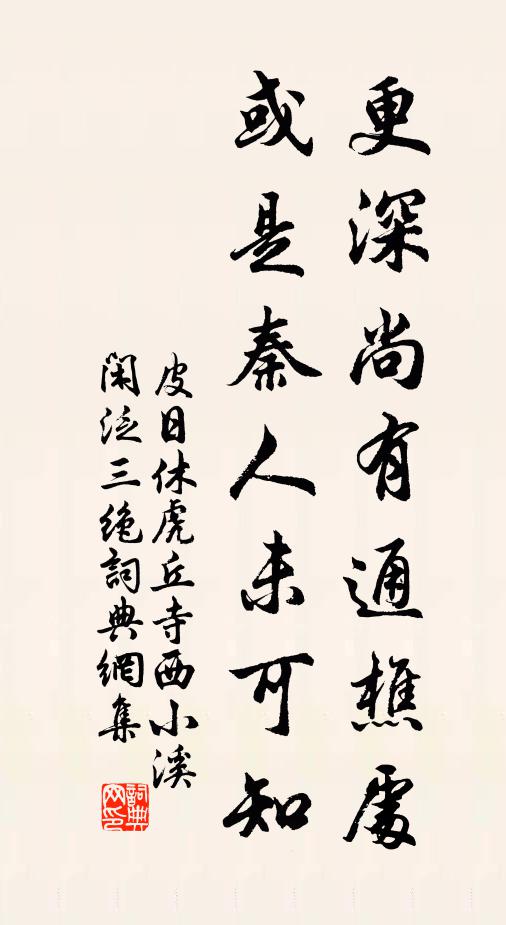 更深尚有通樵處
或是秦人未可知
皮日休虎丘寺西小溪
閑泛三絶詞典網集
詞典
网印